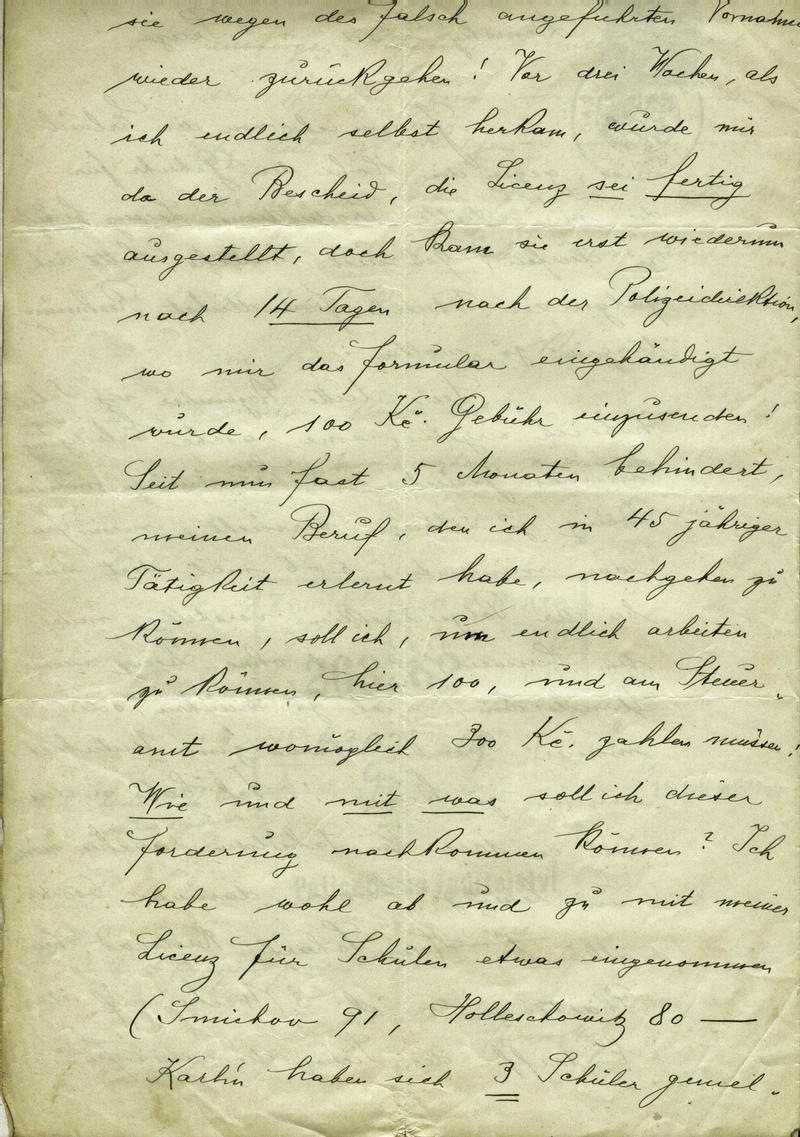 sie wegen des falsch angeführten Vornahmen
wieder zurückgehen! Vor drei Wochen, als
ich endlich selbst herkam, wurde mir
da der Bescheid, die Licenz sei fertig
ausgestellt, doch kam sie erst wiederum
nach 14 Tagen nach der Polizeidirektion,
wo mir das Formular eingehändigt
wurde, 100 Kč. Gebühr einzusenden!
Seit nun fast 5 Monaten behindert,
meinen Beruf, den ich in 45 jähriger
Tätigkeit erlernt habe, nachgehen zu
können, soll ich, um endlich arbeiten
zu können, hier 100, und am Steuer-
amt womöglich 300 Kč. zahlen müssen!
Wie und mit was soll ich dieser
Forderung nachkommen können? Ich
habe wohl ab und zu mit meiner
Licenz für Schulen etwas eingenommen
(Smichov 91, Holleschowitz 80 —
Karlín haben sich 3 Schüler gemel-